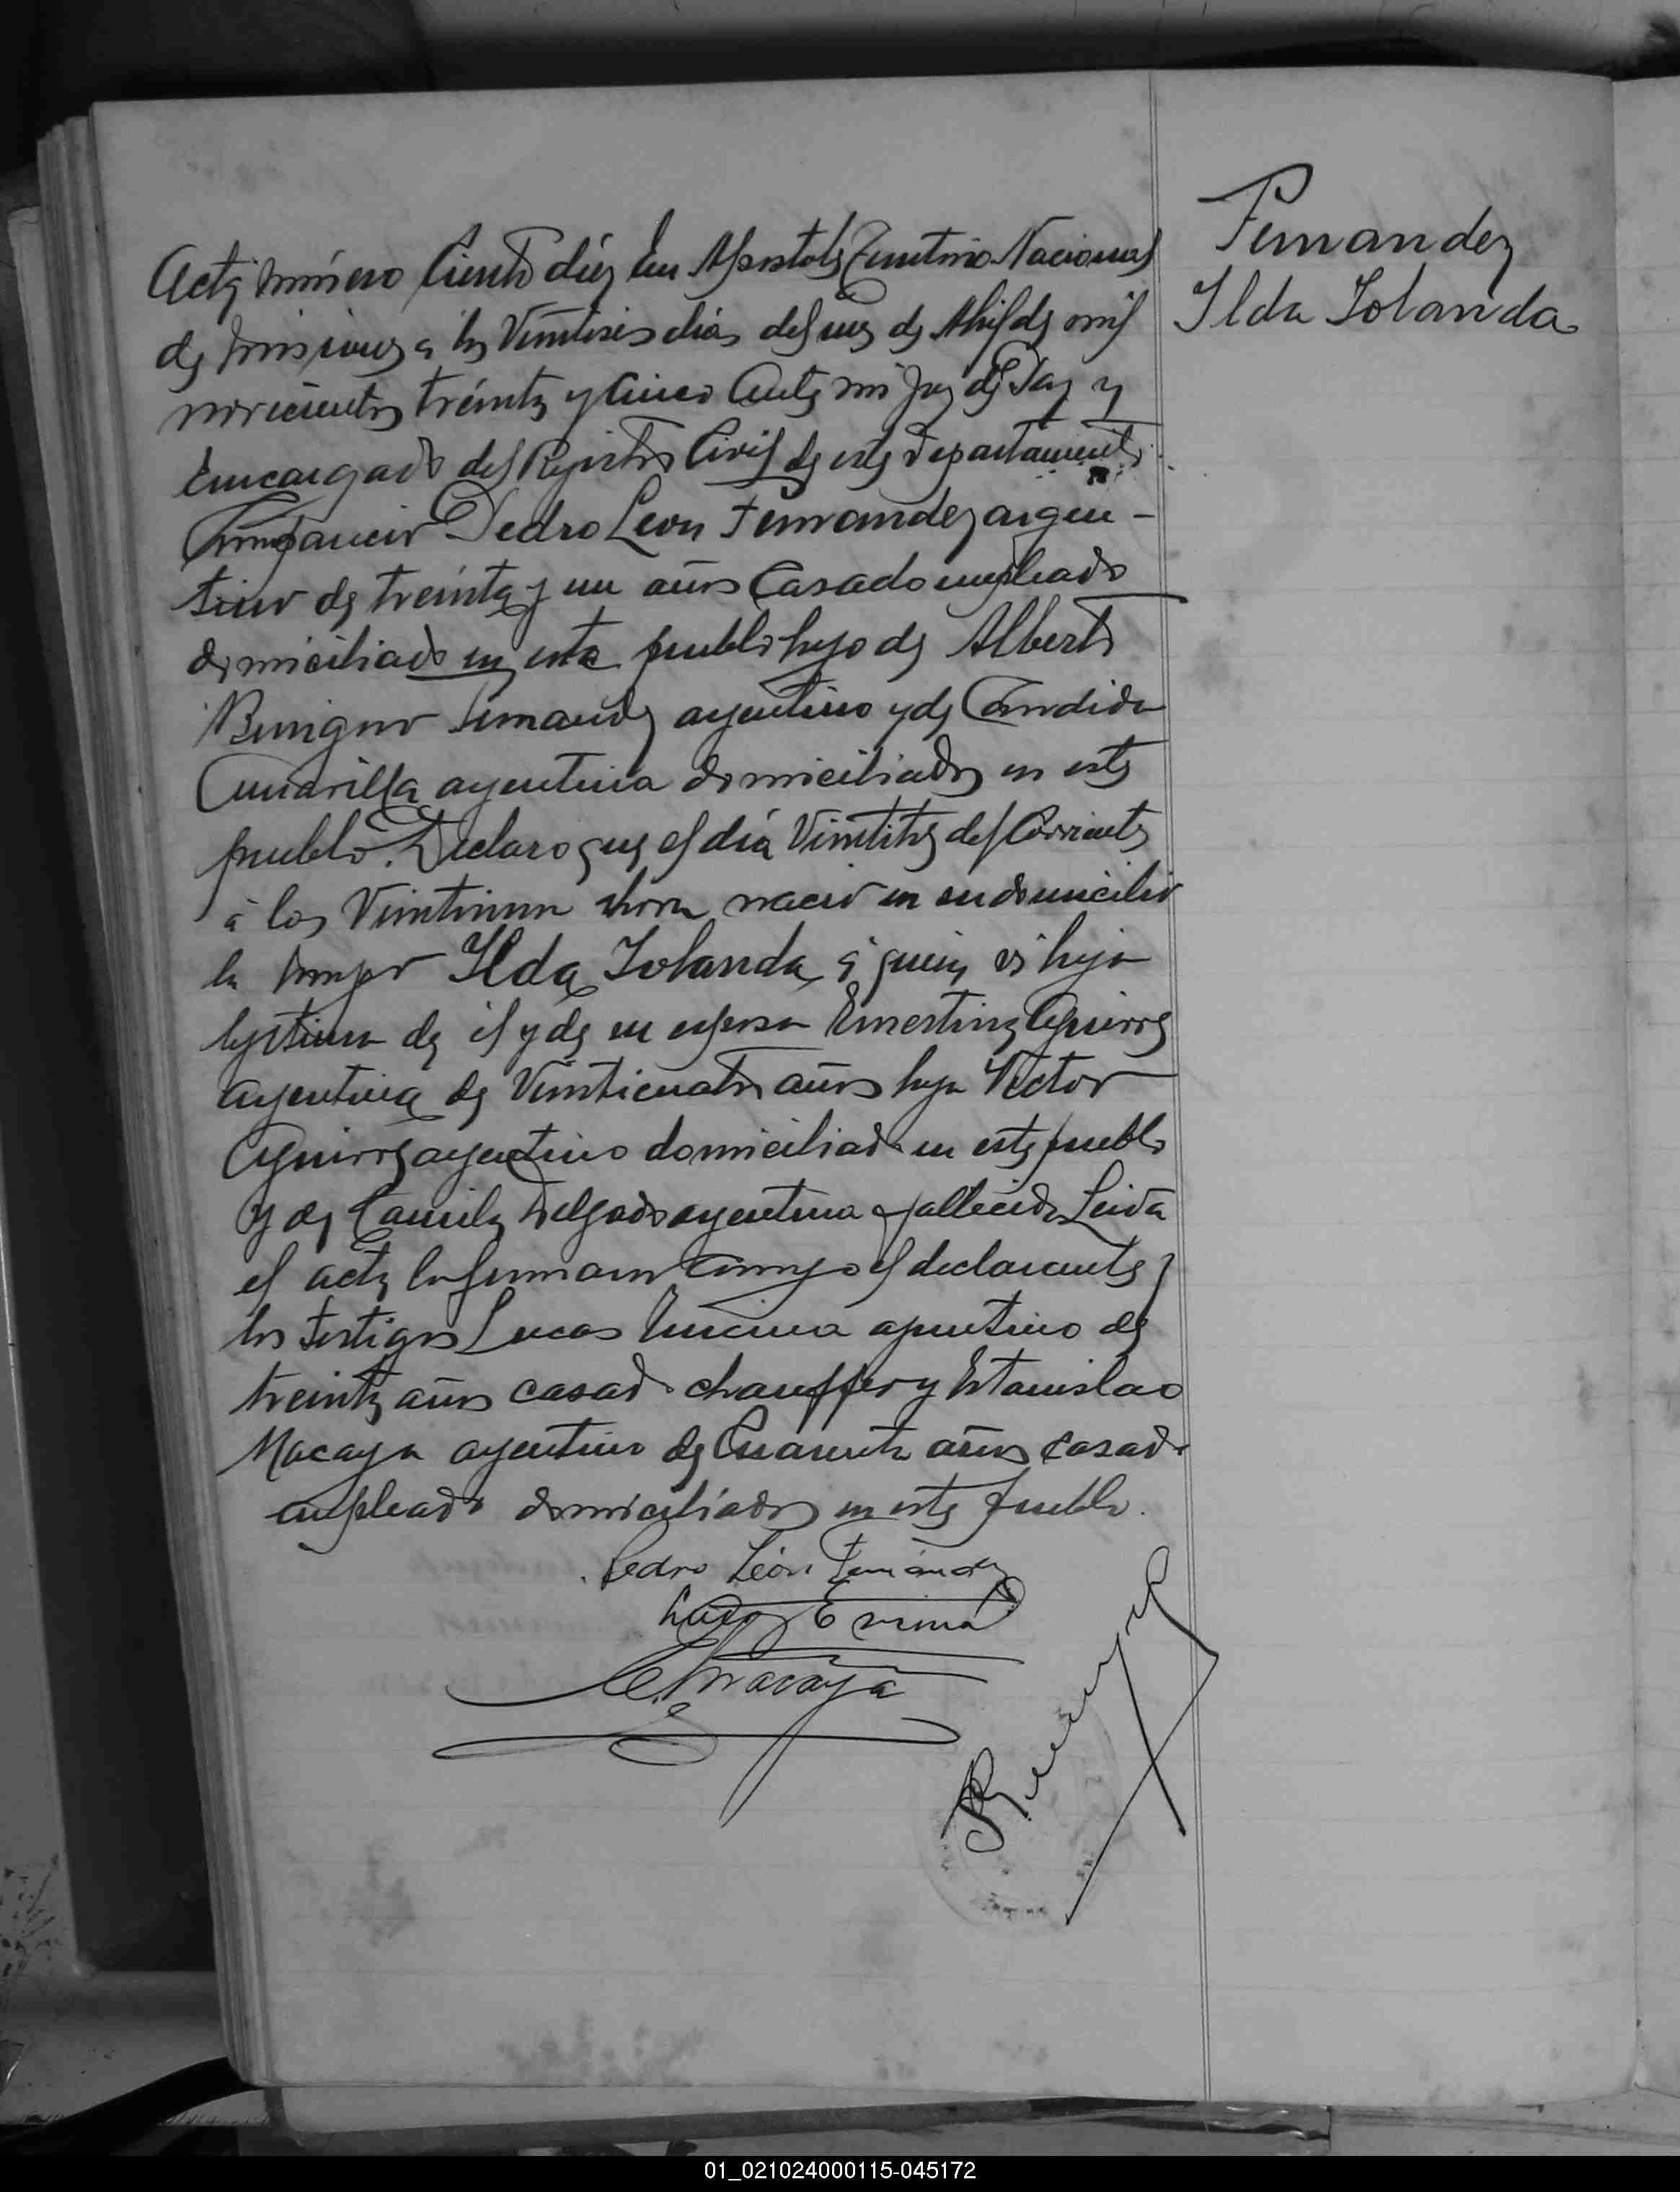 Acta número Ciento diéz En Apostoles Territorio Nacional
de Misiones a los Veintiseis dias del mes de Abril de mil
novecientos treinta y Cinco Ante mi Juez de Paz y
Encargado del Registro Civil de este Departamento
Compareció Pedro Leon Fernandez argen-
tino de treinta y un años Casado empleado
domiciliado en este pueblo hijo de Alberto
Benigno Fernandez argentino y de Candida
Amarilla argentina domiciliados en este
pueblo. Declaro que el día Veintitres del Corriente
á las Veintiuna hora nació en su domicilio
la mujer Ilda Iolanda á quien es hija
legitima de él y de su esposa Ernestina Aguirre
argentina de Veinticuatro años hija Victor
Aguirre argentino domiciliado en este pueblo
y de Camila Delgado argentina fallecida Leida
el acta la firmaron conmigo el declarante y
los testigos Lucas Encina argentino de
treinta años casado chauffer y Estanislao
Macaya argentino de Cuarenta años casado
empleado domiciliados en este pueblo.
Pedro León Fernández
Lucas Encina
E. Macaya
Fernandez
Ilda Iolanda
01_021024000115-045172